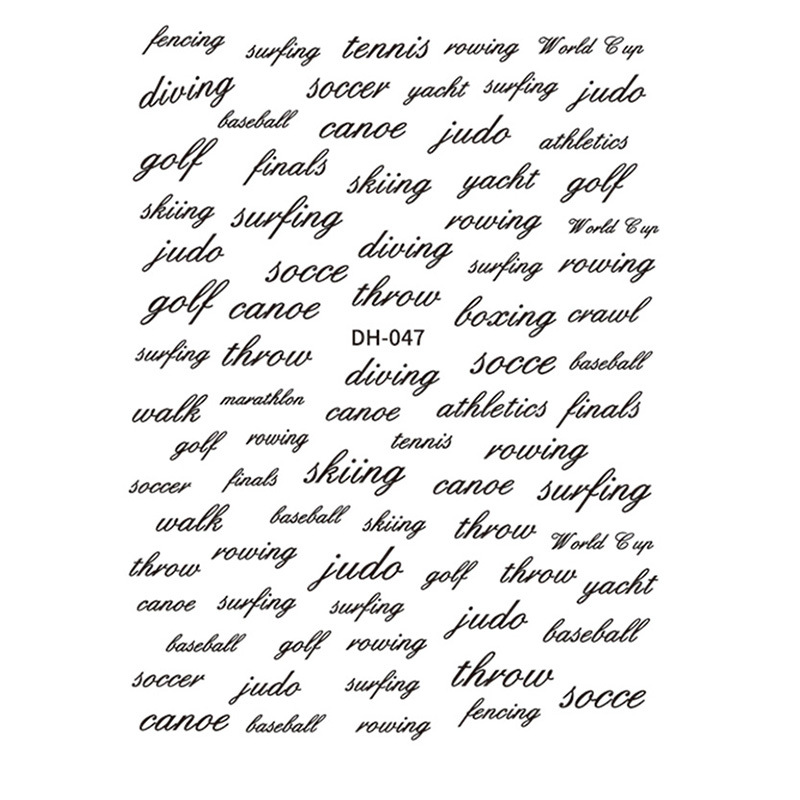 fencing surfing tennis rowing World Cup
diving soccer yacht surfing judo
baseball canoe judo athletics
golf finals skiing yacht golf
skiing surfing rowing World Cup
judo socce diving surfing rowing
golf canoe throw boxing crawl
DH-047
surfing throw diving socce baseball
walk marathlon canoe athletics finals
golf rowing tennis rowing
soccer finals skiing canoe surfing
walk baseball skiing throw World Cup
throw rowing judo golf throw yacht
canoe surfing surfing judo baseball
baseball golf rowing
soccer judo surfing throw socce
canoe baseball rowing fencing